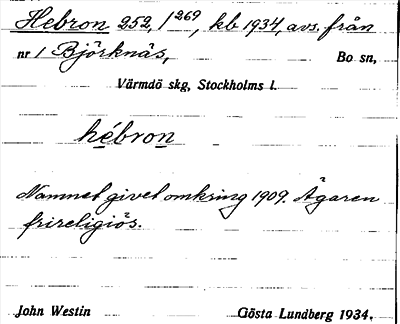 Hebron 252, 1²⁶⁹, kb 1934, avs. från
nr 1 Björknäs, Bo sn,
Värmdö skg, Stockholms l.
hébron
Namnet givet omkring 1909. Ägaren
frireligiös.
John Westin Gösta Lundberg 1934.